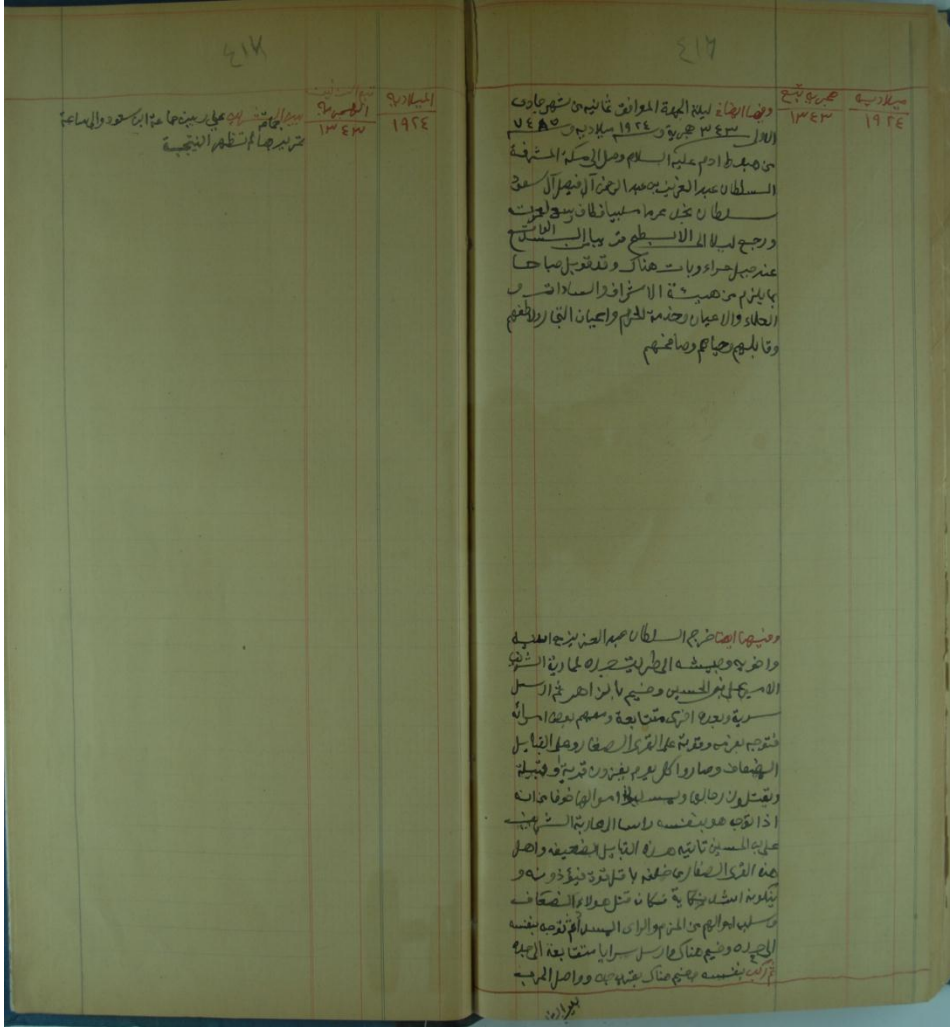 ٤١٦
ميلاديه
١٩٢٤
هجريه
١٣٤٣
وفيها ايضا في ليلة الجمعة الموافق ثمانيه من شهر جمادى
الاول ١٣٤٣ هجرية و ١٩٢٤ ميلاديه و ٧٤٨٥
من هبوط ادم عليه السلام وصل الى مكة المشرفة
السلطان عبد العزيز بن عبد الرحمن آل فيصل آل سعود
سلطان نجد محرما ملبيا فطاف وسعى
ورجع ليلا الى الابطح
عند جبل حراء وبات هناك وقد قوبل صباحا
بما يلزم من هيئة الاشراف والسادات و
العلماء والاعيان وخدمة الحرم واعيان التجار ولاطفهم
وقابلهم وحياهم وصافحهم
وفيها ايضا خرج السلطان عبد العزيز
وجيشه الى طريق جده لمحاربة الشريف
الامير علي بن الحسين وخيم بالزاهر ثم ارسل
سرية وبعده اخرى متتابعة ومعهم بعض امرائه
فتوجه بعزمه وقوته على القرى الصغار وعلى القبايل
الضعاف وصاروا كل يوم يغزون قرية او قبيلة
ويقتلون رجالها ويسلبوا اموالها خوفا من انه
اذا توجه هو بنفسه راسا لمحاربة الشريف
علي بن الحسين تاتيه هذه القبايل الضعيفه واهل
هذه القرى الصغار من خلفه باقل قوة فيؤذونه و
ينكونه اشد نكاية فكان قتل هولاء الضعاف
وسلب اموالهم من الحزم والراى السديد ثم توجه بنفسه
الى جده وخيم هناك وارسل سرايا متتابعة الى جده
ثم ركب بنفسه وخيم هناك بقرب جده وواصل الحرب
٤١٧
الميلاديه
١٩٢٤
الهجريه
١٣٤٣
علي وبين جماعة ابن سعود والى ساعة
تحريرها لم تظهر النتيجة